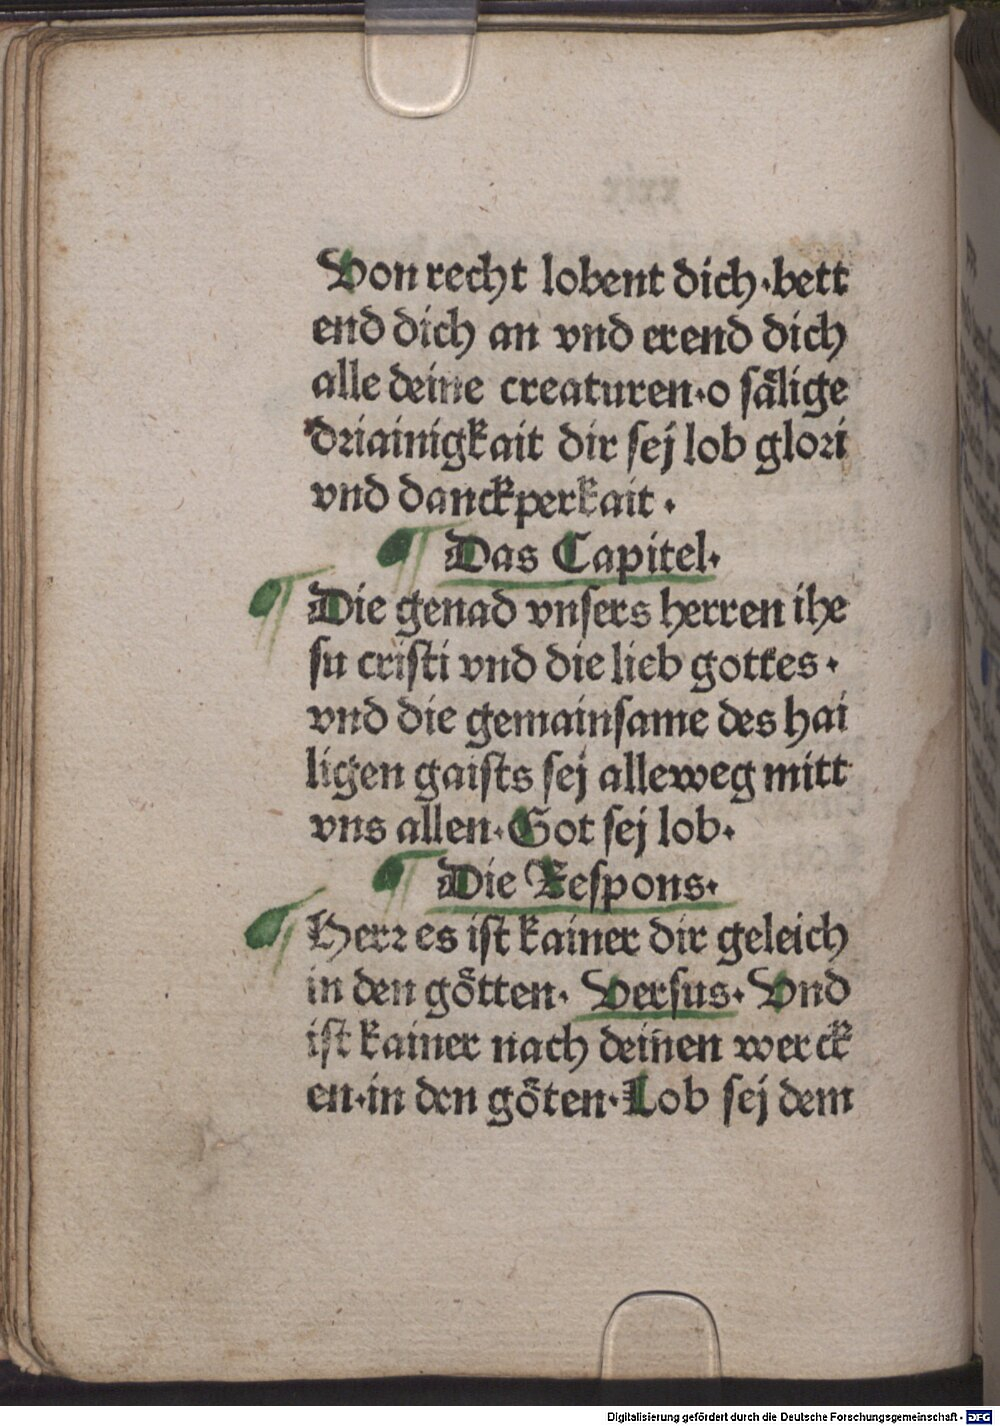 Von recht lobent dich·bett
end dich an vnd erend dich
alle deine creaturen·o sälige
driainigkait dir sej lob glori
vnd danckperkait·
¶ Das Capitel·
¶ Die genad vnsers herren ihe
su cristi vnd die lieb gottes·
vnd die gemainsame des hai
ligen gaists sej alleweg mitt
vns allen·Got sej lob·
¶ Die Respons·
¶ Herr es ist kainer dir geleich
in den götten· Versus· Vnd
ist kainer nach deinen werck
en·in den göten·Lob sej dem
Digitalisierung gefördert durch die Deutsche Forschungsgemeinschaft - DFG